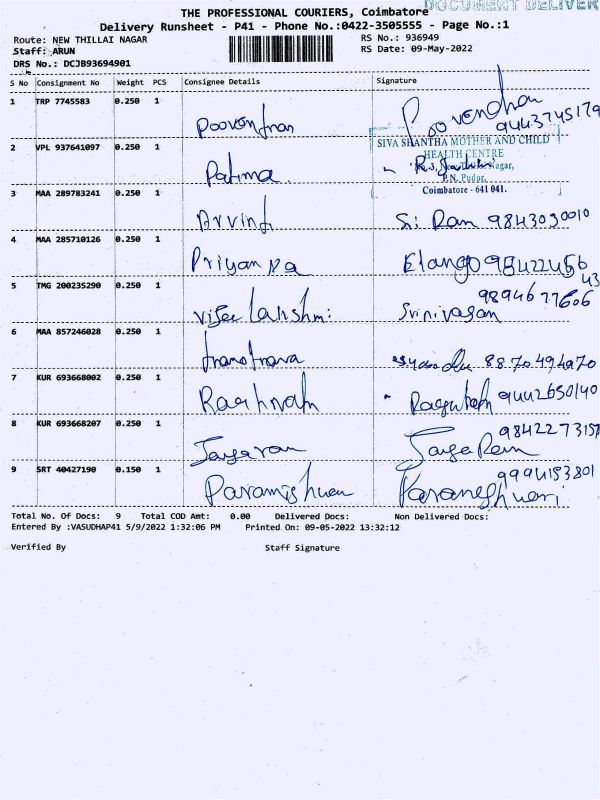 DOCUMENT DELIVER
THE PROFESSIONAL COURIERS, Coimbatore
Delivery Runsheet - P41 - Phone No.:0422-3505555 - Page No.:1
Route: NEW THILLAI NAGAR
RS No.: 936949
Staff: ARUN
RS Date: 09-May-2022
DRS No.: DCJB93694901
S No Consignment No Weight PCS Consignee Details Signature
1 TRP 7745583 0.250 1 Poovendran Poovendhan
9443745179
2 VPL 937641097 0.250 1 Patima
SIVA SHANTHA MOTHER AND CHILD
HEALTH CENTRE
P.N. Pudur,
Coimbatore - 641 041.
3 MAA 289783241 0.250 1 Arvind Sri Ram 9843030010
4 MAA 285710126 0.250 1 Priyanka Elango 98422456
43
5 TMG 200235290 0.250 1 Vijee lakshmi Srinivasan
9894677606
6 MAA 857246028 0.250 1 8870494970
7 KUR 693668002 0.250 1 Raghnath Ragunath 9442650140
8 KUR 693668207 0.250 1 Jayaram Jaya Ram
9842273157
9 SRT 40427190 0.150 1 Paramishwari Parameshwari
9994153801
Total No. Of Docs: 9 Total COD Amt: 0.00 Delivered Docs: Non Delivered Docs:
Entered By :VASUDHAP41 5/9/2022 1:32:06 PM Printed On: 09-05-2022 13:32:12
Verified By Staff Signature